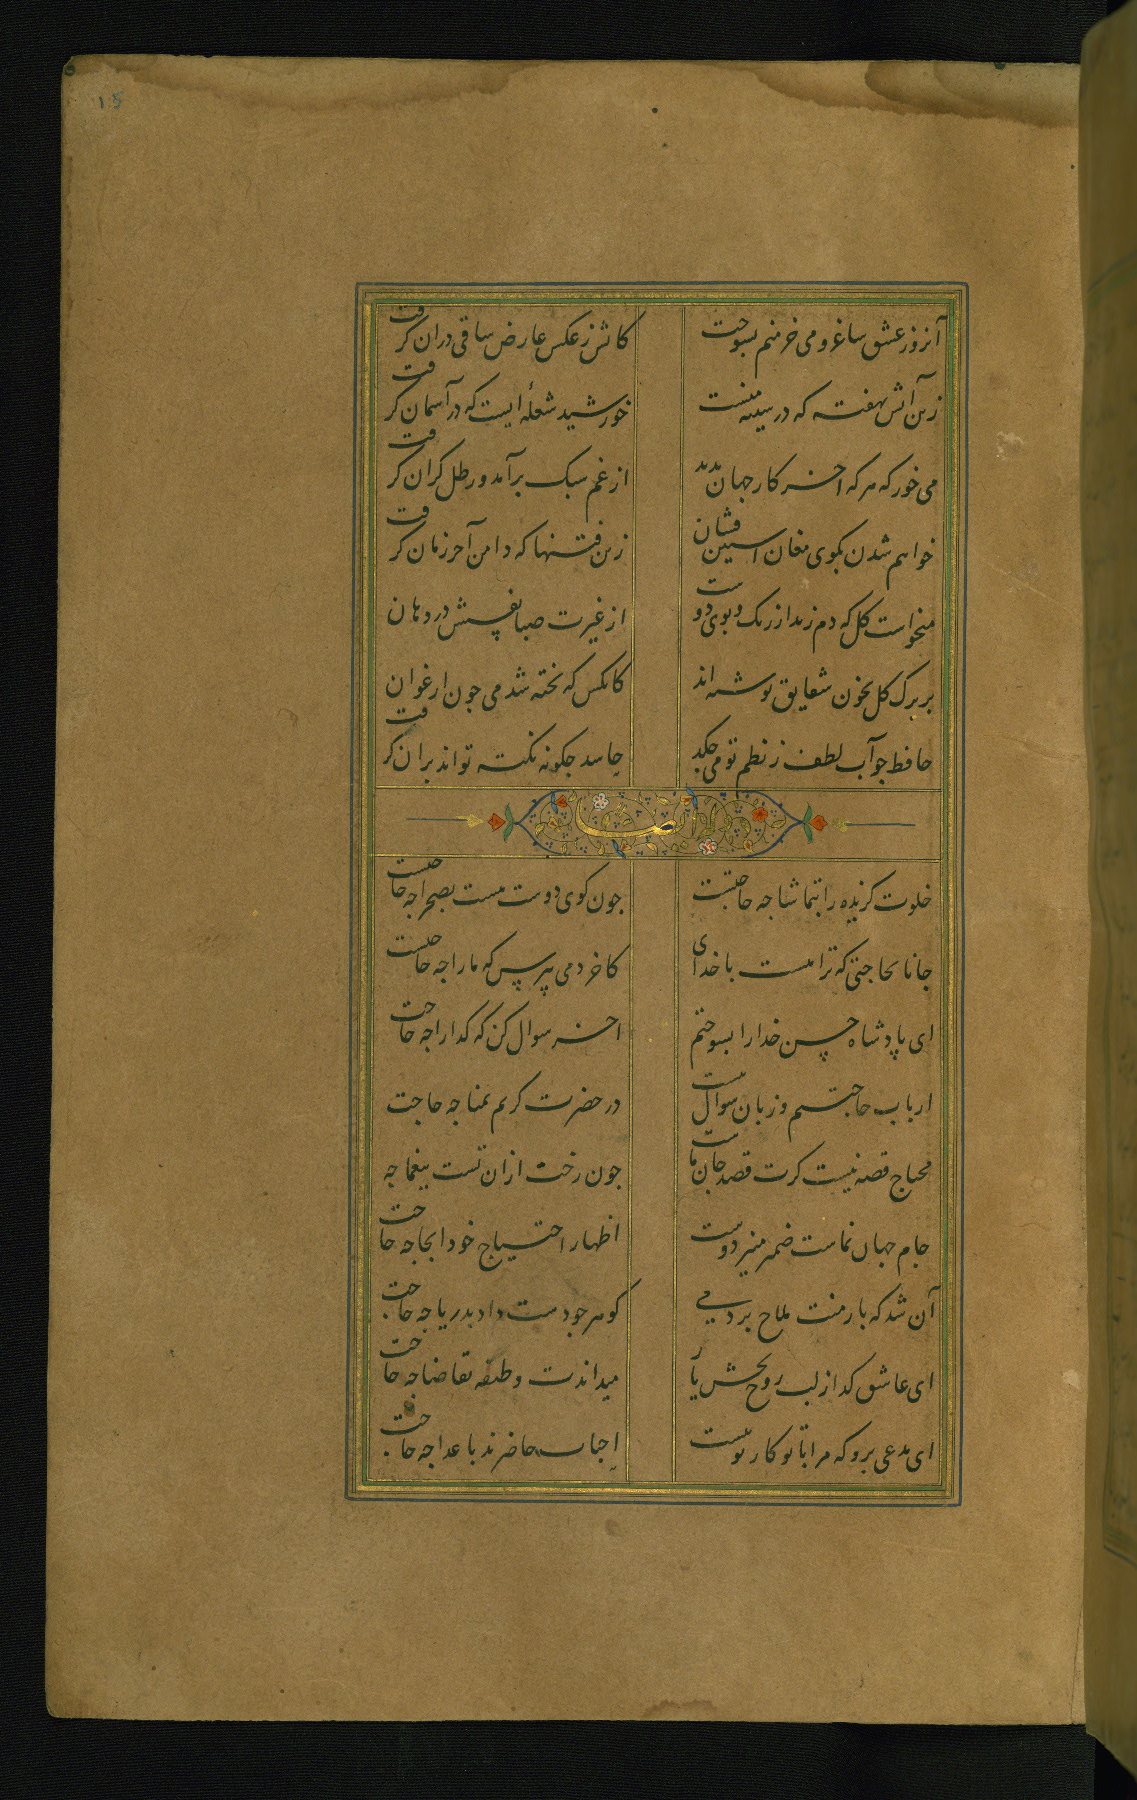 15
آنروز عشق ساغر و می خرمنم بسوخت
کاتش ز عکس عارض ساقی دران گرفت
زین آتش نهفته که در سینه منست
خورشید شعلهٔ ایست که در آسمان گرفت
می خور که هر که آخر کار جهان بدید
از غم سبک برآمد و رطل گران گرفت
خواهم شدن بکوی مغان آستین فشان
زین فتنها که دامن آخر زمان گرفت
میخواست گل که دم زند از رنگ و بوی دوست
از غیرت صبا نفسش در دهان
بر برگ گل بخون شقایق نوشته اند
کانکس که پخته شد می چون ارغوان گرفت
حافظ چو آب لطف ز نظم تو می چکد
حاسد چگونه نکته تواند بران گرفت
وله ایضا
خلوت گزیده را بتماشا چه حاجتست
چون کوی دوست هست بصحرا چه حاجتست
جانا بحاجتی که ترا هست با خدای
کاخر دمی بپرس که ما را چه حاجتست
ای پادشاه حسن خدا را بسوختم
آخر سوال کن که گدا را چه حاجت
ارباب حاجتیم و زبان سوال نیست
در حضرت کریم تمنا چه حاجت
محتاج قصه نیست گرت قصد جان ماست
چون رخت ازان تست بیغما چه
جام جهان نماست ضمیر منیر دوست
اظهار احتیاج خود آنجا چه حاجت
آن شد که بار منت ملاح بردمی
گوهر چو دست داد بدریا چه حاجت
ای عاشق گدا ز لب روح بخش یار
میداندت وظیفه تقاضا چه حاجت
ای مدعی برو که مرا با تو کار نیست
احباب حاضرند باعدا چه حاجت